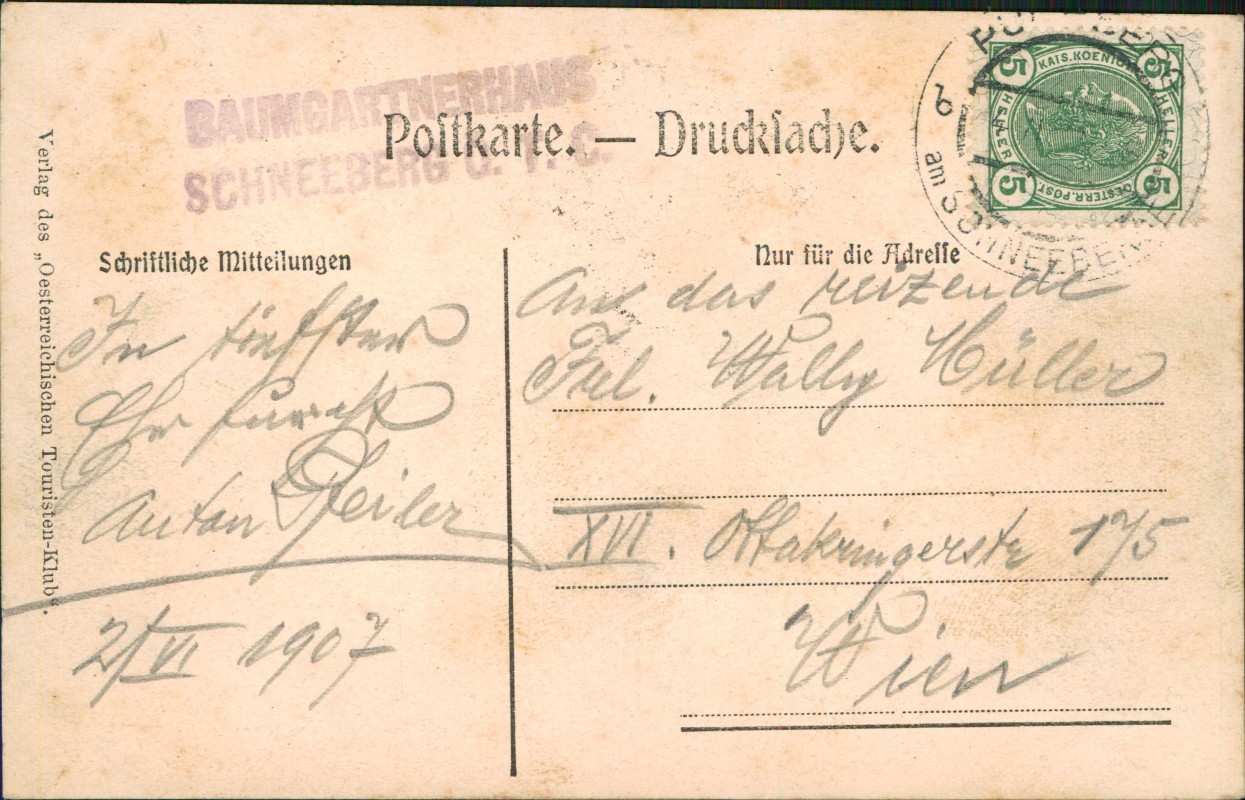 BAUMGARTNERHAUS
SCHNEEBERG Ö. T. C.
Postkarte. — Drucksache.
5 5
KAIS. KOENIGL.
HELLER HELLER
OESTERR. POST
5 5
b
am SCHNEEBERG
Verlag des „Oesterreichischen Touristen-Klub“.
Schriftliche Mitteilungen
In tiefster
Ehrfurcht
Anton Peiler
2/VI 1907
Nur für die Adresse
An das reizende
Frl. Wally Müller
XVI. Ottakringerstr 175
Wien